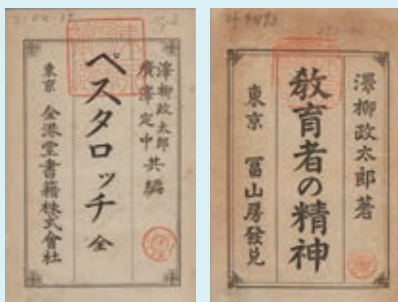 澤柳政太郎
廣澤定中
共編
ペスタロッチ 全
東京 金港堂書籍株式會社
澤柳政太郎著
教育者の精神
東京 冨山房發兌